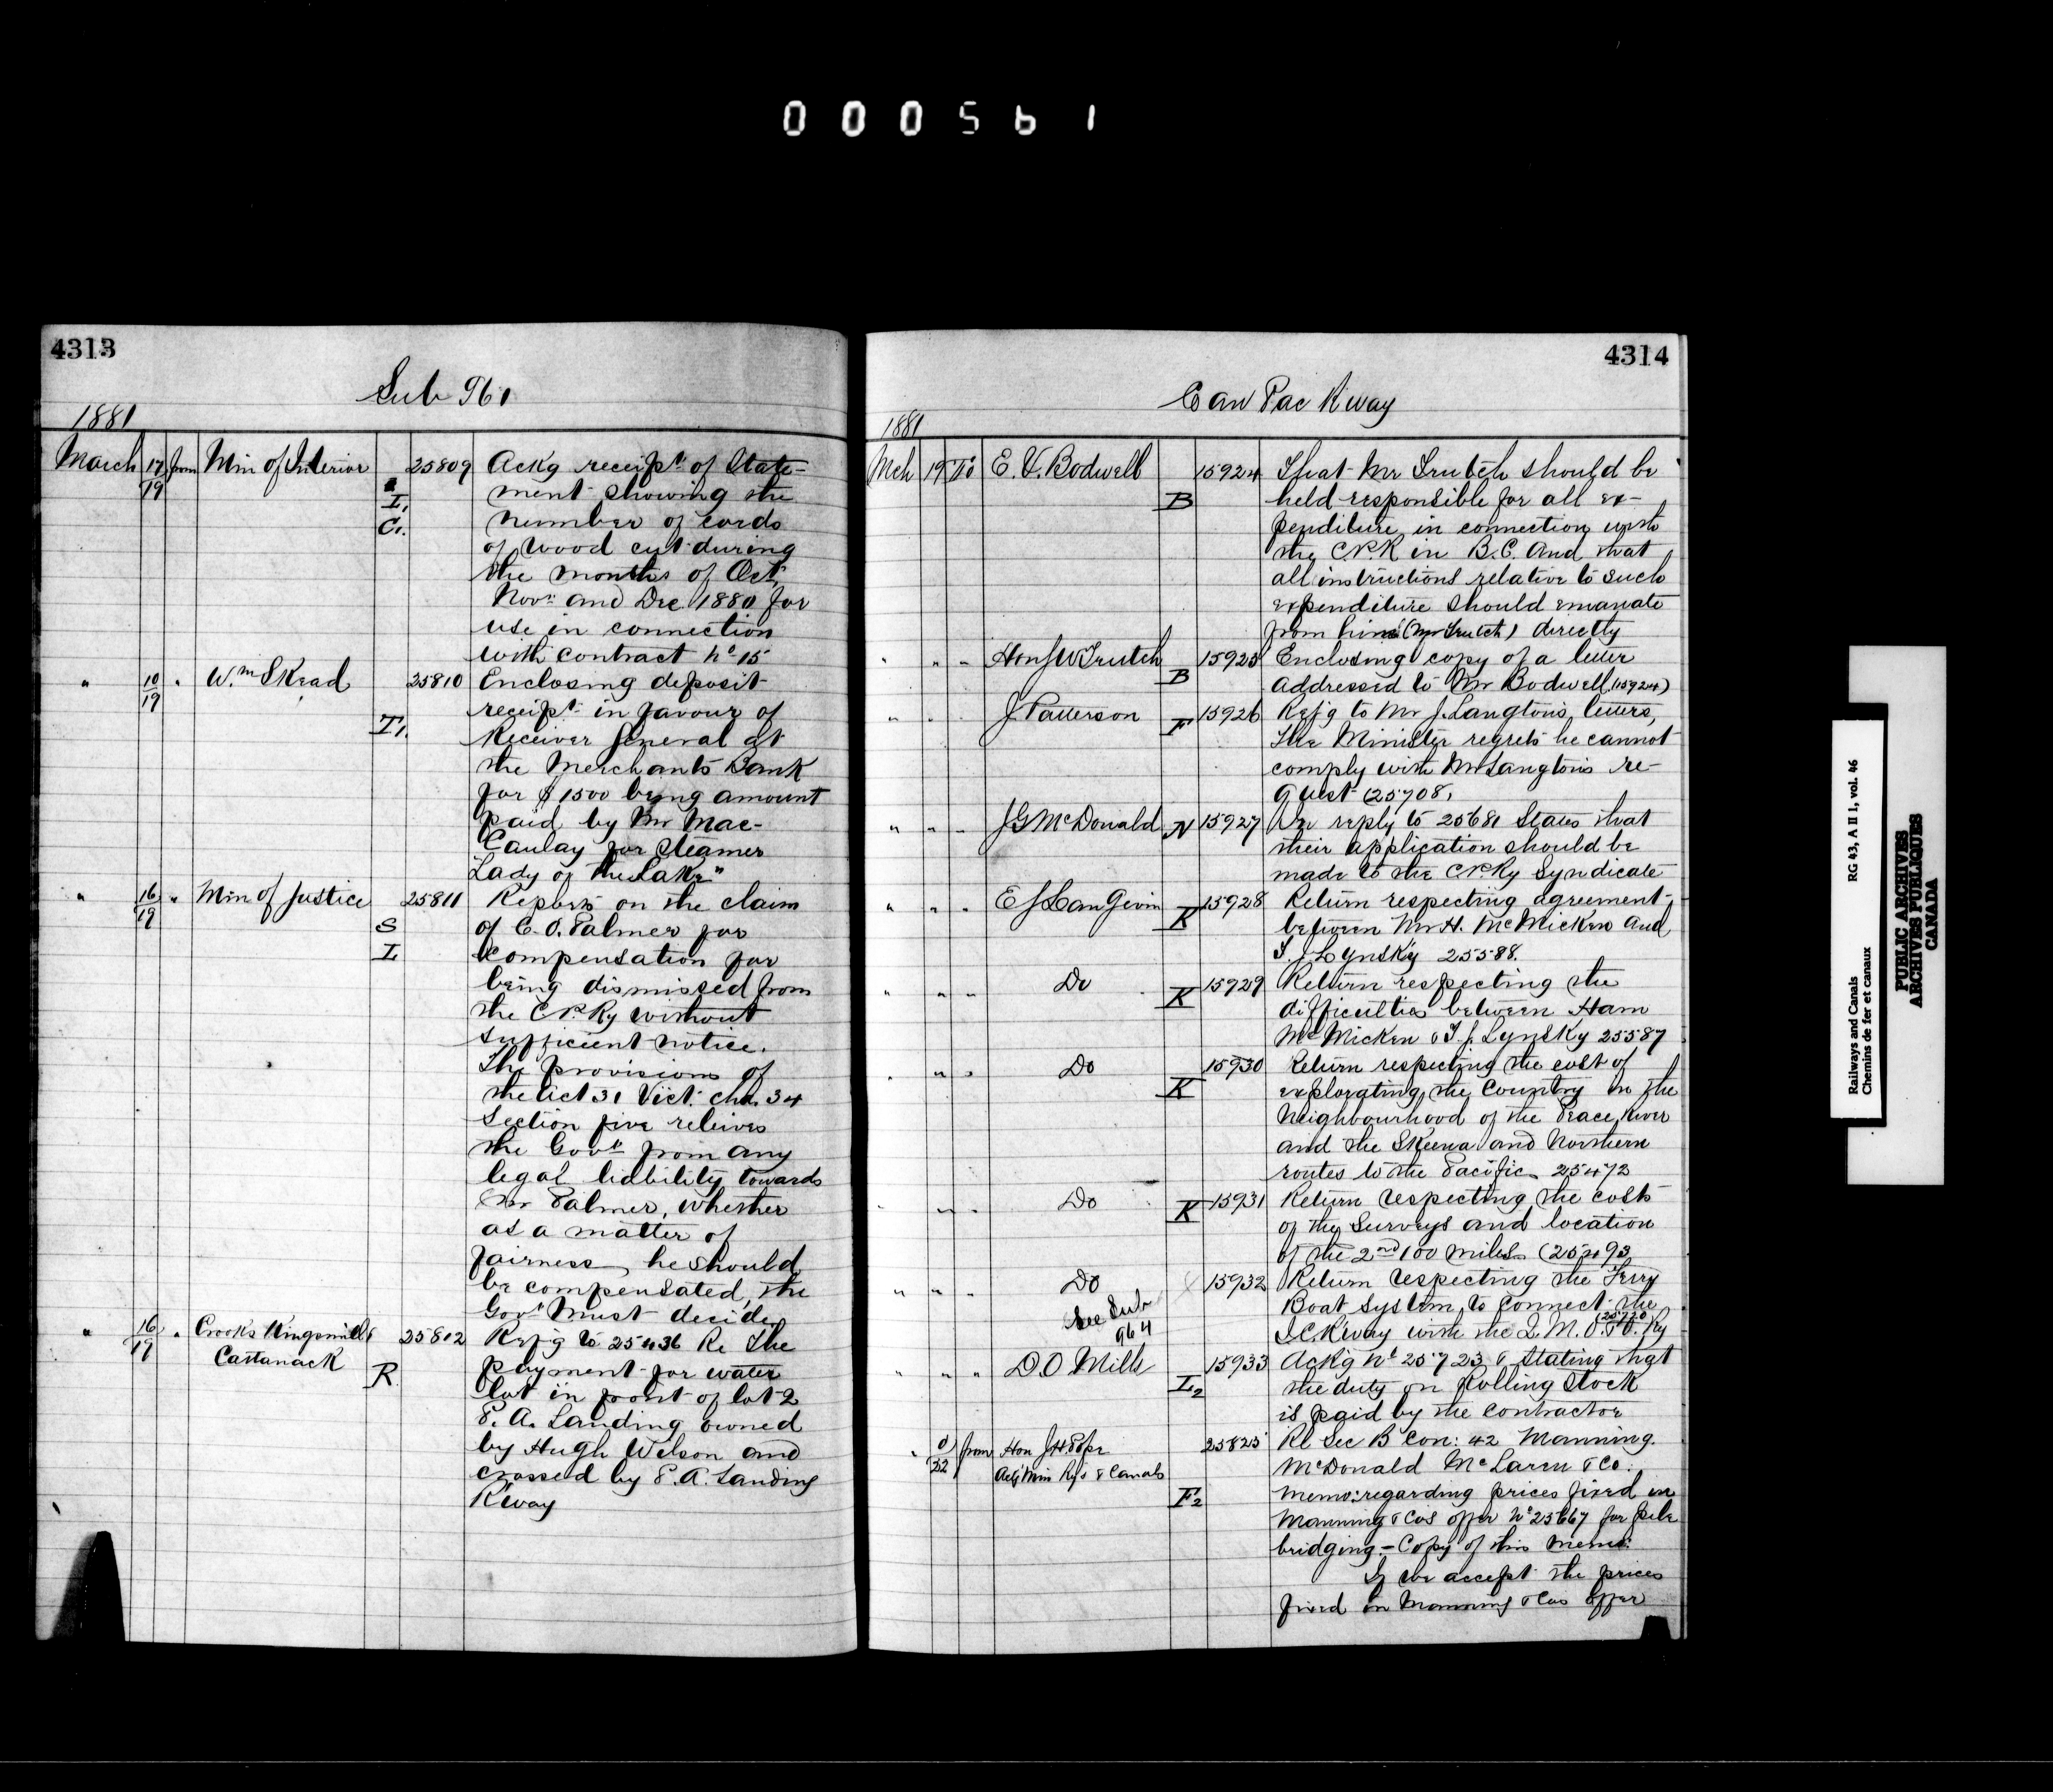 000561
4313
Sub 961
1881
March 17/19 from Min of Interior 25809 Ackg receipt of State-
I, ment showing the
C. number of cords
of wood cut during
the months of Oct
Novr and Dec 1880 for
use in connection
with contract No 15
" 10/19 " Wm Skead 25810 Enclosing deposit
receipt in favour of
T1. Receiver General at
the Merchants Bank
for $1500 being amount
paid by Mr Mac-
Caulay for Steamer
"Lady of the Lake"
" 16/19 " Min of Justice 25811 Reports on the claim
S of C. O. Palmer for
I compensation for
being dismissed from
the C P. Ry without
sufficient notice.
The provisions of
the Act 31 Vict. Cha. 34
Section five relieves
the Govt from any
legal liability towards
Mr Palmer, whether
as a matter of
fairness, he should
be compensated, the
Govt must decide.
" 16/19 " Crooks Kingsmill & 25812 Refg to 25436 Re the
Cattanack
R. payment for water
lot in front of lot 2
P. A. Landing owned
by Hugh Wilson and
crossed by P. A. Landing
R'way
4314
Can Pac R way
1881
Mch 19 To E. V. Bodwell 15924 That Mr Trutch should be
B held responsible for all ex-
penditure in connection with
the C.P.R in B.C. and that
all instructions relative to such
expenditure should emanate
from him (Mr Trutch) directly
" " " Hon J W Trutch 15925 Enclosing copy of a letter
B addressed to Mr Bodwell (15924)
" " J. Patterson F 15926 Refg to Mr J. Langton's letters,
the Minister regrets he cannot
comply with Mr Langton's re-
quest (25708)
" " " J G McDonald N 15927 In reply to 25681 States that
their application should be
made to the C P Ry Syndicate
" " " E J Langevin K 15928 Return respecting agreement
between Mr H. McMicken and
T. J. Lynsky 25588.
" " " Do K 15929 Return respecting the
difficulties between Ham
McMicken & T. J. Lynsky 25587
" " " Do 15930 Return respecting the cost of
K explorating the Country in the
Neighbourhood of the Peace River
and the Skeena and Northern
routes to the Pacific 25472
" " " Do K 15931 Return respecting the cost
of the Surveys and location
of the 2nd 100 miles (25493
" " " Do 15932 Return respecting the Ferry
See Sub 964
Boat System to connect the
I.C.R'way with the Q. M. O. & O. Ry (25720)
" " " D O Mills 15933 Ackg No 25723 & Stating that
L2 the duty on Rolling Stock
is paid by the contractor
" 0/22 from Hon J H Pope 25825 Re Sec B Con: 42 Manning.
Actg Min Rys & Canals McDonald McLaren & Co:
F2 Memo: regarding prices fixed in
Manning & Cos offer No 25667 for pile
bridging. - Copy of this memo:
If we accept the prices
fixed in Manning & Cos offer
Railways and Canals RG 43, A II 1, vol. 46
Chemins de fer et canaux
PUBLIC ARCHIVES
ARCHIVES PUBLIQUES
CANADA